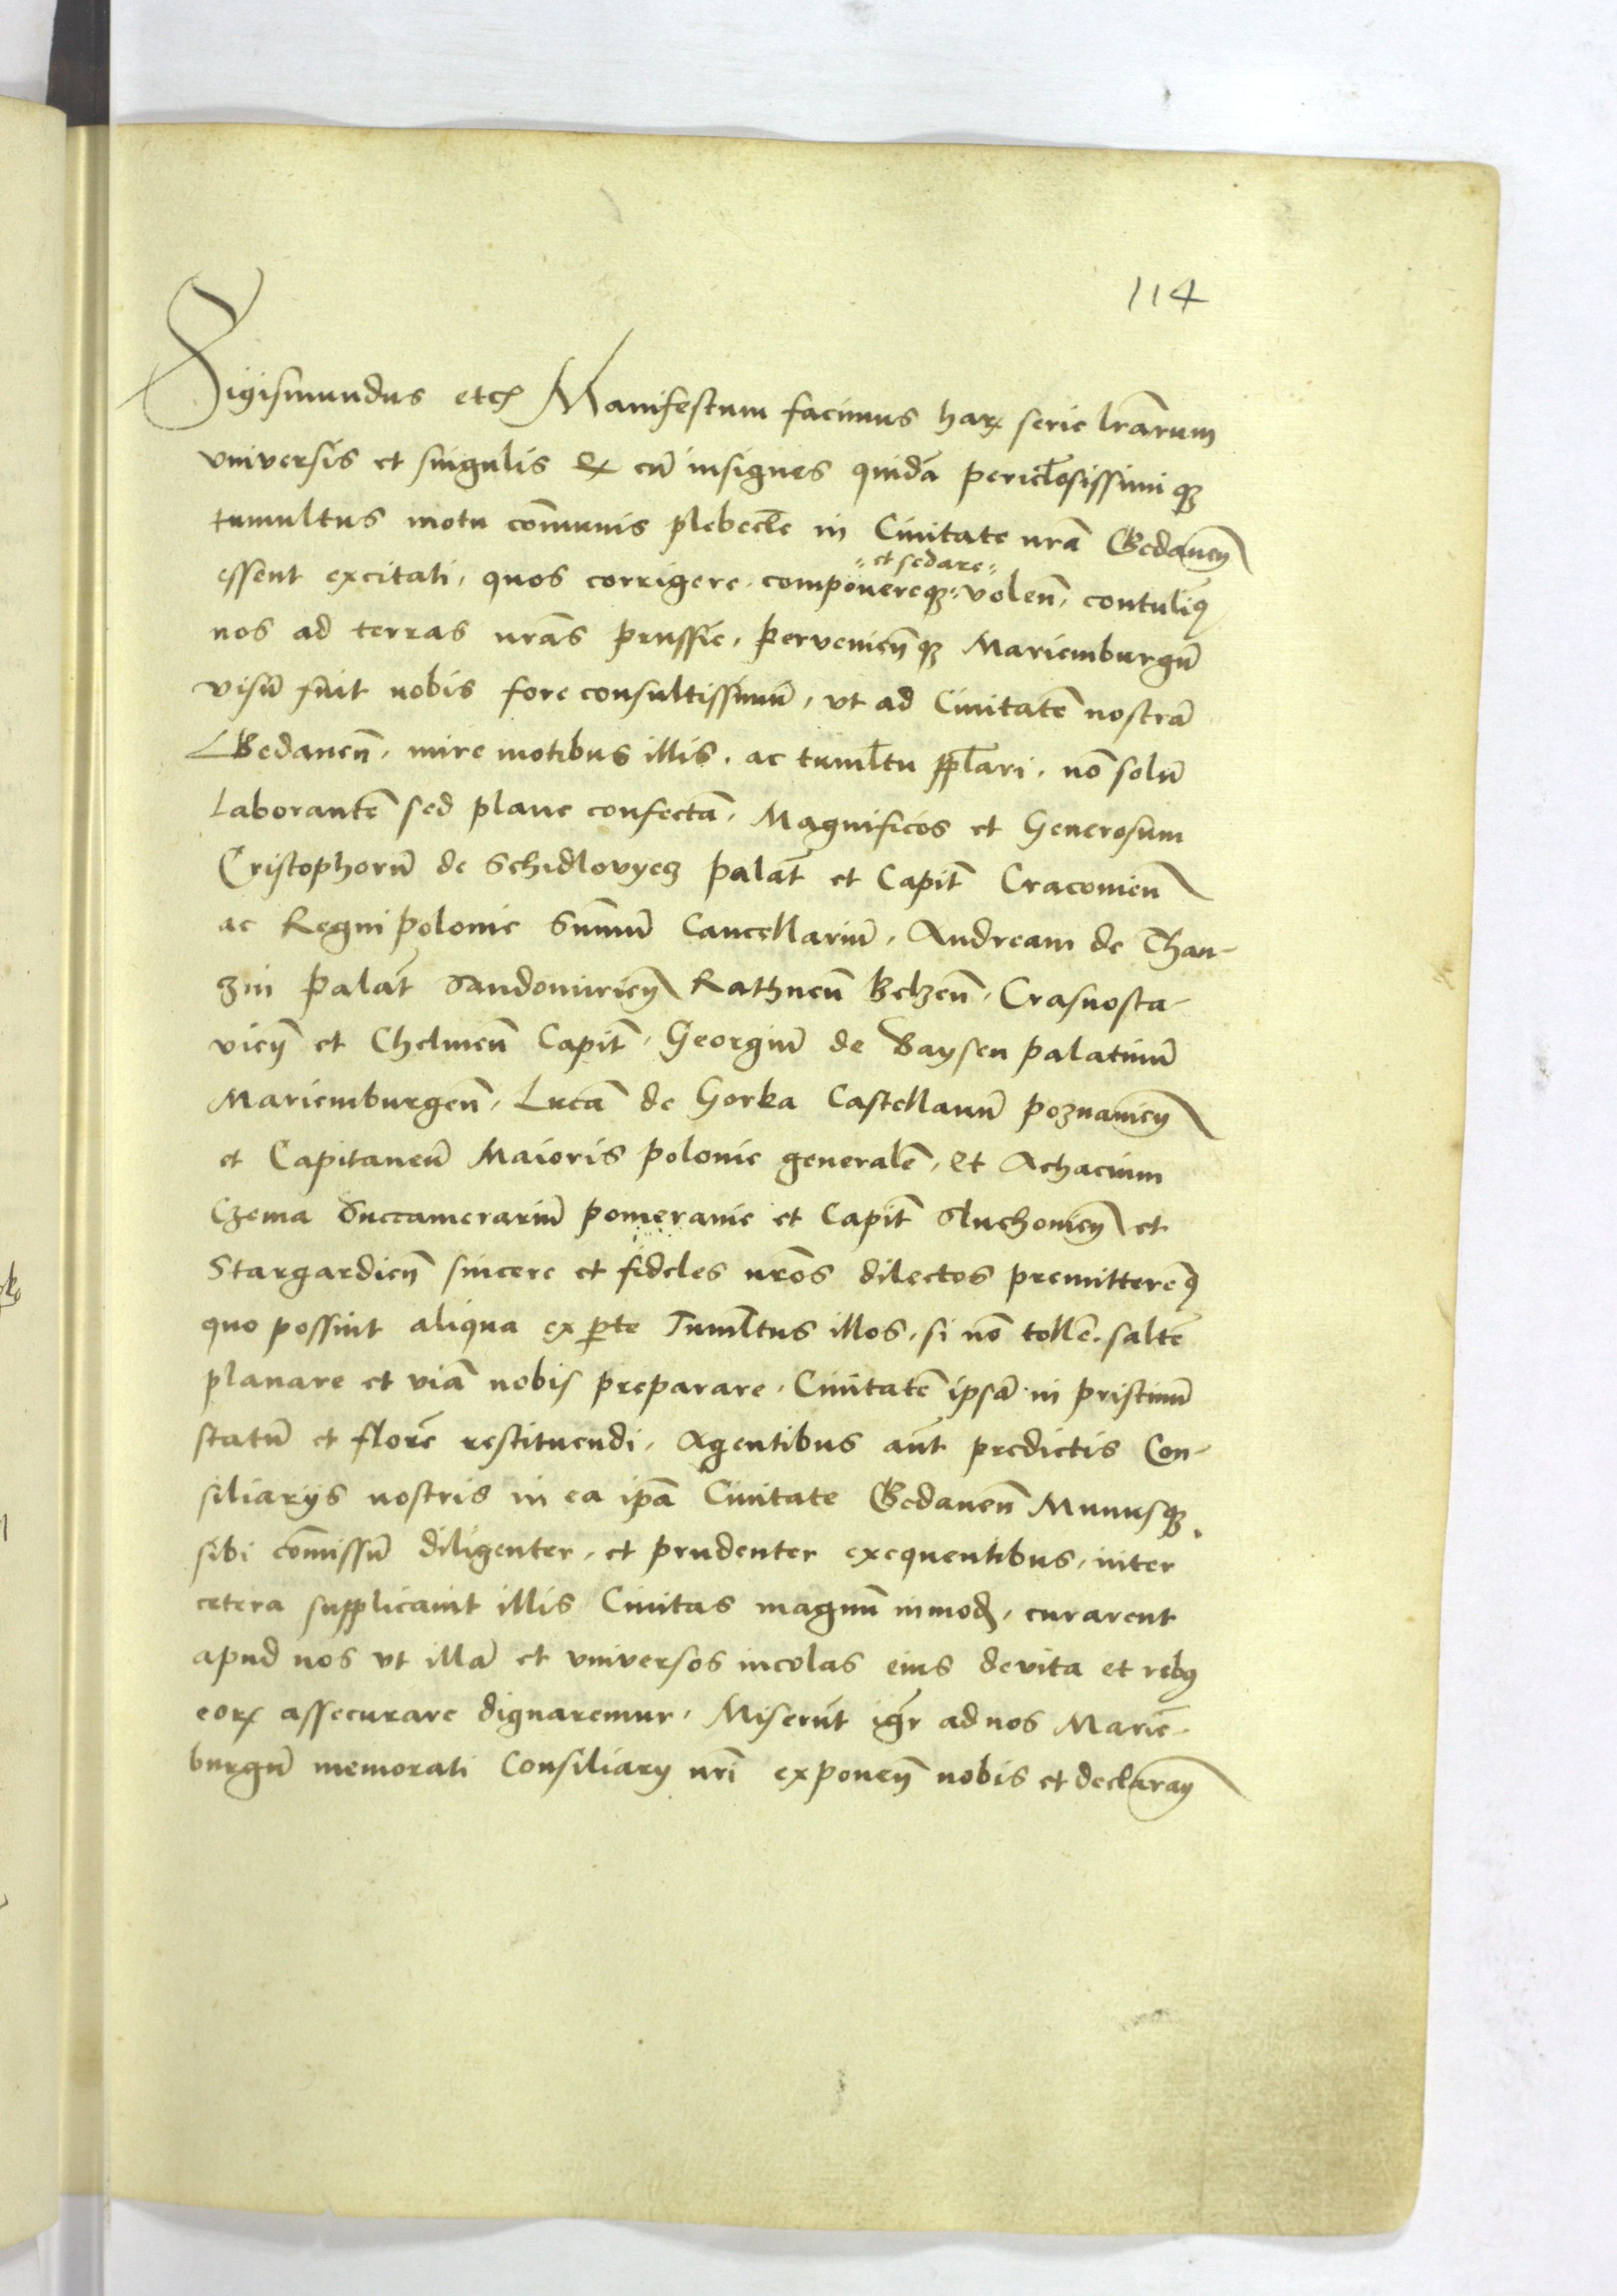 114
Sigismundus etcꝭ Manifestum facimus harꝝ serie lr̃arum
vniversis et singulis Qꝫ cũ insignes quidã pericl̃osissimi qꝫ
tumultus motu cõmunis plebecl̃e in Ciuitate nr̃a Gedaneñ
et sedare
essent excitati, quos corrigere, componereqꝫ volen̄, contuliꝰ
nos ad terras nr̃as prussie, pervenien̄qꝫ Mariemburgũ
visũ fuit nobis fore consultissimũ, vt ad Ciuitatẽ nostrã
Gedanen̄, mire motibus illis, ac tuml̃tu ppl̃ari, nõ solũ
Laborantẽ sed plane confectã, Magnificos et Generosum
Cristophorũ de Schidlovyecz palat̃ et Capit̃ Cracouien̄
ac Regni polonie Sum̃ũ Cancellariũ, Andream de Than-
zin palat̃ Sandomirien̄ Rathnen̄ Belzen̄, Crasnosta-
vien̄ et Chelmen̄ Capit̃, Georgiũ de Baysen palatinũ
Mariemburgen̄, Lucã de Gorka Castellanũ poznanien̄
et Capitaneũ Maioris polonie generalẽ, Et Achacium
Czema Succamerariũ pomeranie et Capit̃ Sluchouien̄ et
Stargardien̄ sincere et fideles nr̃os dilectos premitteremꝰ
quo possint aliqua ex ꝑte Tuml̃tus illos, si nõ tollẽ, saltẽ
planare et viã nobis preparare, Ciuitatẽ ipsã in pristinũ
statũ et florẽ restituendi, Agentibus aũt predictis Con-
siliarijs nostris in ea ip̃a Ciuitate Gedanen̄ Munusqꝫ
sibi cõmissũ diligenter, et prudenter exequentibus, inter
cetera supplicauit illis Ciuitas magnũ inmodꝫ, curarent
apud nos vt illã et vniversos incolas eius devita et rebꝰ
eorꝝ assecurare dignaremur, Miserũt igr̃ ad nos Mariẽ-
burgũ memorati Consiliarij nr̃i exponen̄ nobis et declaran̄